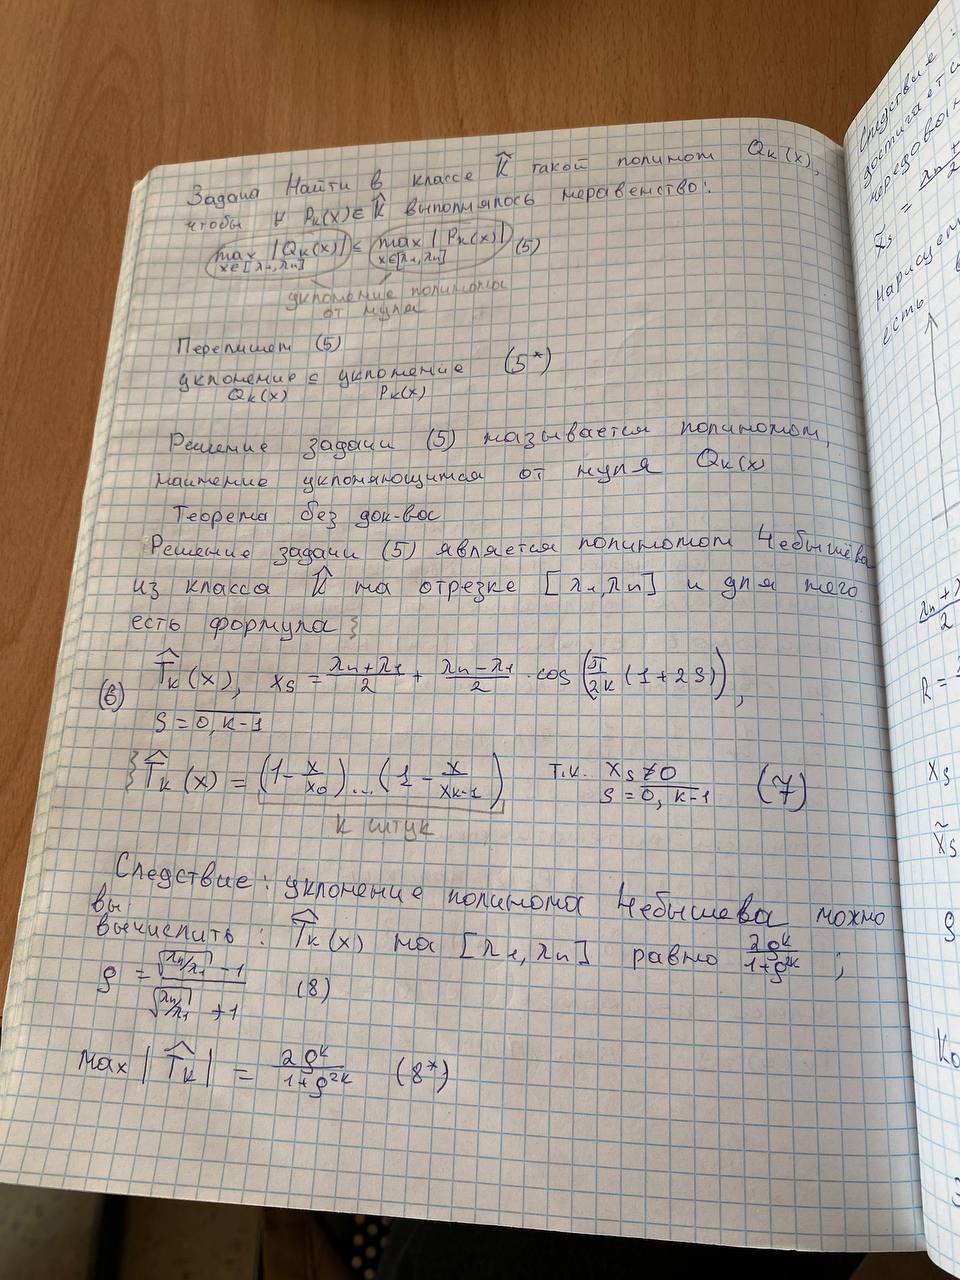 Задача Найти в классе K̂ такой полином Qₖ(x),
чтобы ∀ Pₖ(x)∈K̂ выполнялось неравенство:
max |Qₖ(x)| ≤ max |Pₖ(x)| (5)
x∈[λ₁,λₙ] x∈[λ₁,λₙ]
уклонение полинома
от нуля
Перепишем (5)
уклонение ≤ уклонение (5*)
Qₖ(x) Pₖ(x)
Решение задачи (5) называется полиномом,
наименее уклоняющимся от нуля Qₖ(x)
Теорема без док-вос
Решение задачи (5) является полиномом Чебышёва
из класса K̂ на отрезке [λ₁,λₙ] и для него
есть формула }
T̂ₖ(x), xₛ = (λₙ+λ₁)/2 + (λₙ-λ₁)/2 · cos(π/2k (1+2S)),
(6)
S = 0, k-1
} T̂ₖ(x) = (1 - x/x₀)...(1 - x/xₖ₋₁) т.к. xₛ ≠ 0 (7)
S = 0, k-1
k штук
Следствие: уклонение полинома Чебышева можно
вы
вычислить: T̂ₖ(x) на [λ₁,λₙ] равно 2ρᵏ/(1+ρ²ᵏ) ;
ρ = (√(λₙ/λ₁) - 1)/(√(λₙ/λ₁) + 1) (8)
max |T̂ₖ| = 2ρᵏ/(1+ρ²ᵏ) (8*)
Следствие:
достигается
x̃ₛ =
Нарисуем
есть
λₙ+λ
2
R =
xₛ
x̃ₛ